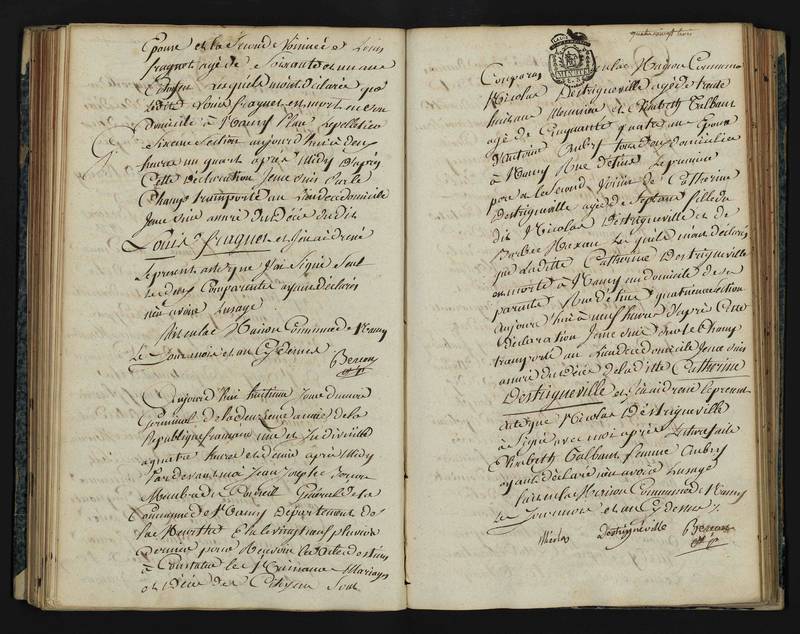 Epouse et la Seconde Voisine de Louis
fraqnot agé de Soixante et un ans
Lesquels m'ont déclaré que
Ledit Louis fraqnot est mort en Son
domicile à Nancy Place Lepelletier
Sixieme Section aujourd'hui à deux
heures un quart après Midy D'après
Cette déclaration Je me suis Sur le
Champ transporté au Lieu de ce domicile
Je me suis assuré du décès dudit
Louis fraqnot et j'en ai dressé
Le present acte que J'ai Signé Seul
Les deux Comparantes ayant déclaré
n'en avoir Lusage
fait en la Maison Commune de Nancy
Le Jour mois et an Cy dessus
Aujourd'hui huitieme Jour du mois
Germinal de la deuxieme année de la
Republique francaise une et Indivisible
à quatre heures et demie après Midy
Pardevant moi Jean Joseph
Membre du Conseil Général de la
Commune de Nancy Département de
la Meurthe Elu le vingt neuf pluviose
dernier pour Recevoir les actes destinés
à Constater les Naissances Mariages
et Décès des Citoyens Sont
quatrevingt trois
Comparus en la Maison Commune
Nicolas Destrigneville agé de trente
huit ans et Elisabeth Galbaut
agé de Cinquante quatre ans Epouse
D'antoine Aubry tous deux domiciliés
à Nancy Rue Le premier
pere et la Second Voisine de Catherine
Destrigneville agée de Sept ans fille du
dit Nicolas Destrigneville et de
Barbe Lesquels m'ont déclaré
que Ladite Catherine Destrigneville
est morte à Nancy au domicile de ses
parents Rue quatrieme Section
aujourd'hui à neuf heures D'après Cette
déclaration Je me suis Sur le Champ
transporté au Lieu de ce domicile Je me suis
assuré du décès de ladite Catherine
Destrigneville et j'en ai dressé le present
acte que Nicolas Destrigneville
à Signé avec moi après Lecture faite
Elisabeth Galbaut femme Aubry
ayant déclaré n'en avoir Lusage
fait en la Maison Commune de Nancy
Le Jour mois et an Cy dessus
Nicolas Destrigneville